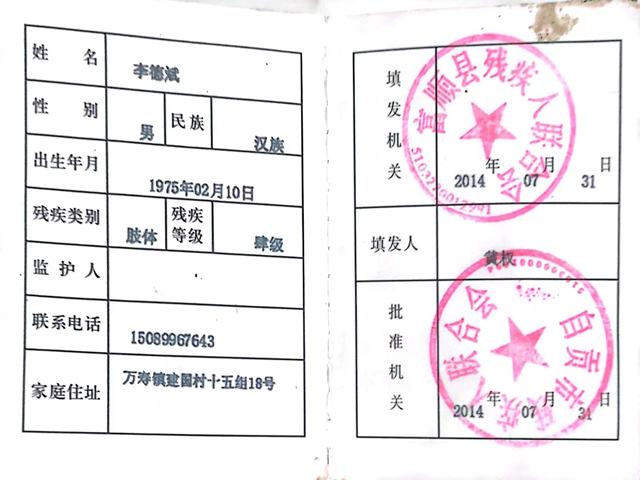 姓 名 李德斌
性 别 男 民族 汉族
出生年月 1975年02月10日
残疾类别 肢体 残疾等级 肆级
监 护 人
联系电话 15089967643
家庭住址 万寿镇建国村十五组18号
填发机关
富顺县残疾人联合会
2014年 07月 31日
填发人 黄权
批准机关
自贡市残疾人联合会
2014年 07月 31日